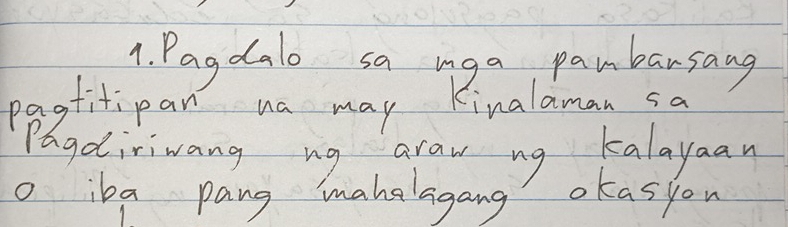 1. Pagdalo sa mga pambansang
pagtitipan na may kinalaman sa
Pagdiriwang ng araw ng kalayaan
o iba pang mahalagang okasyon